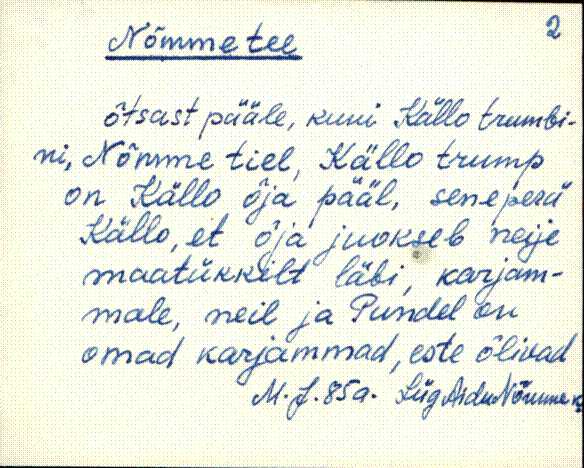 2
Nõmme tee
õtsast pääle, kuni Källo trumbi-
ni, Nõmme tiel, Källo trump
on Källo õja pääl, seneperä
Källo, et õja juokseb neije
maatükkilt läbi, karjam-
male, neil ja Pundel on
omad karjammad, este õlivad
M. J. 85 a. Lüg Aidu Nõmme k.